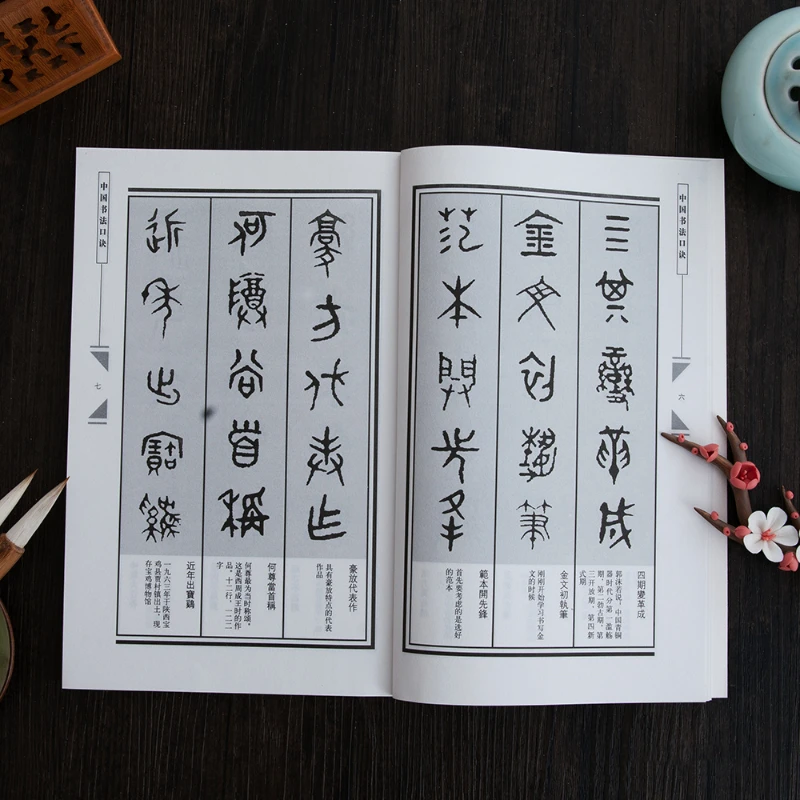 中国书法口诀
六
四期變革成
四期變革成
郭沫若说:中国青铜
器时代分第一滥觞
期,第二勃古期,第
三开放期,第四新
式期
金文初執筆
金文初執筆
刚刚开始学习书写金
文的时候
范本開先鋒
範本開先鋒
首先要考虑的是选好
的范本
豪放代表作
豪放代表作
具有豪放特点的代表
作品
何尊當首稱
何尊當首稱
何尊最为当时称颂。
这是西周成王时的作
品。十二行,一二二
字
近年出寶鷄
近年出寶鷄
一九六三年于陕西宝
鸡县贾村镇出土。现
存宝鸡博物馆
中国书法口诀
七